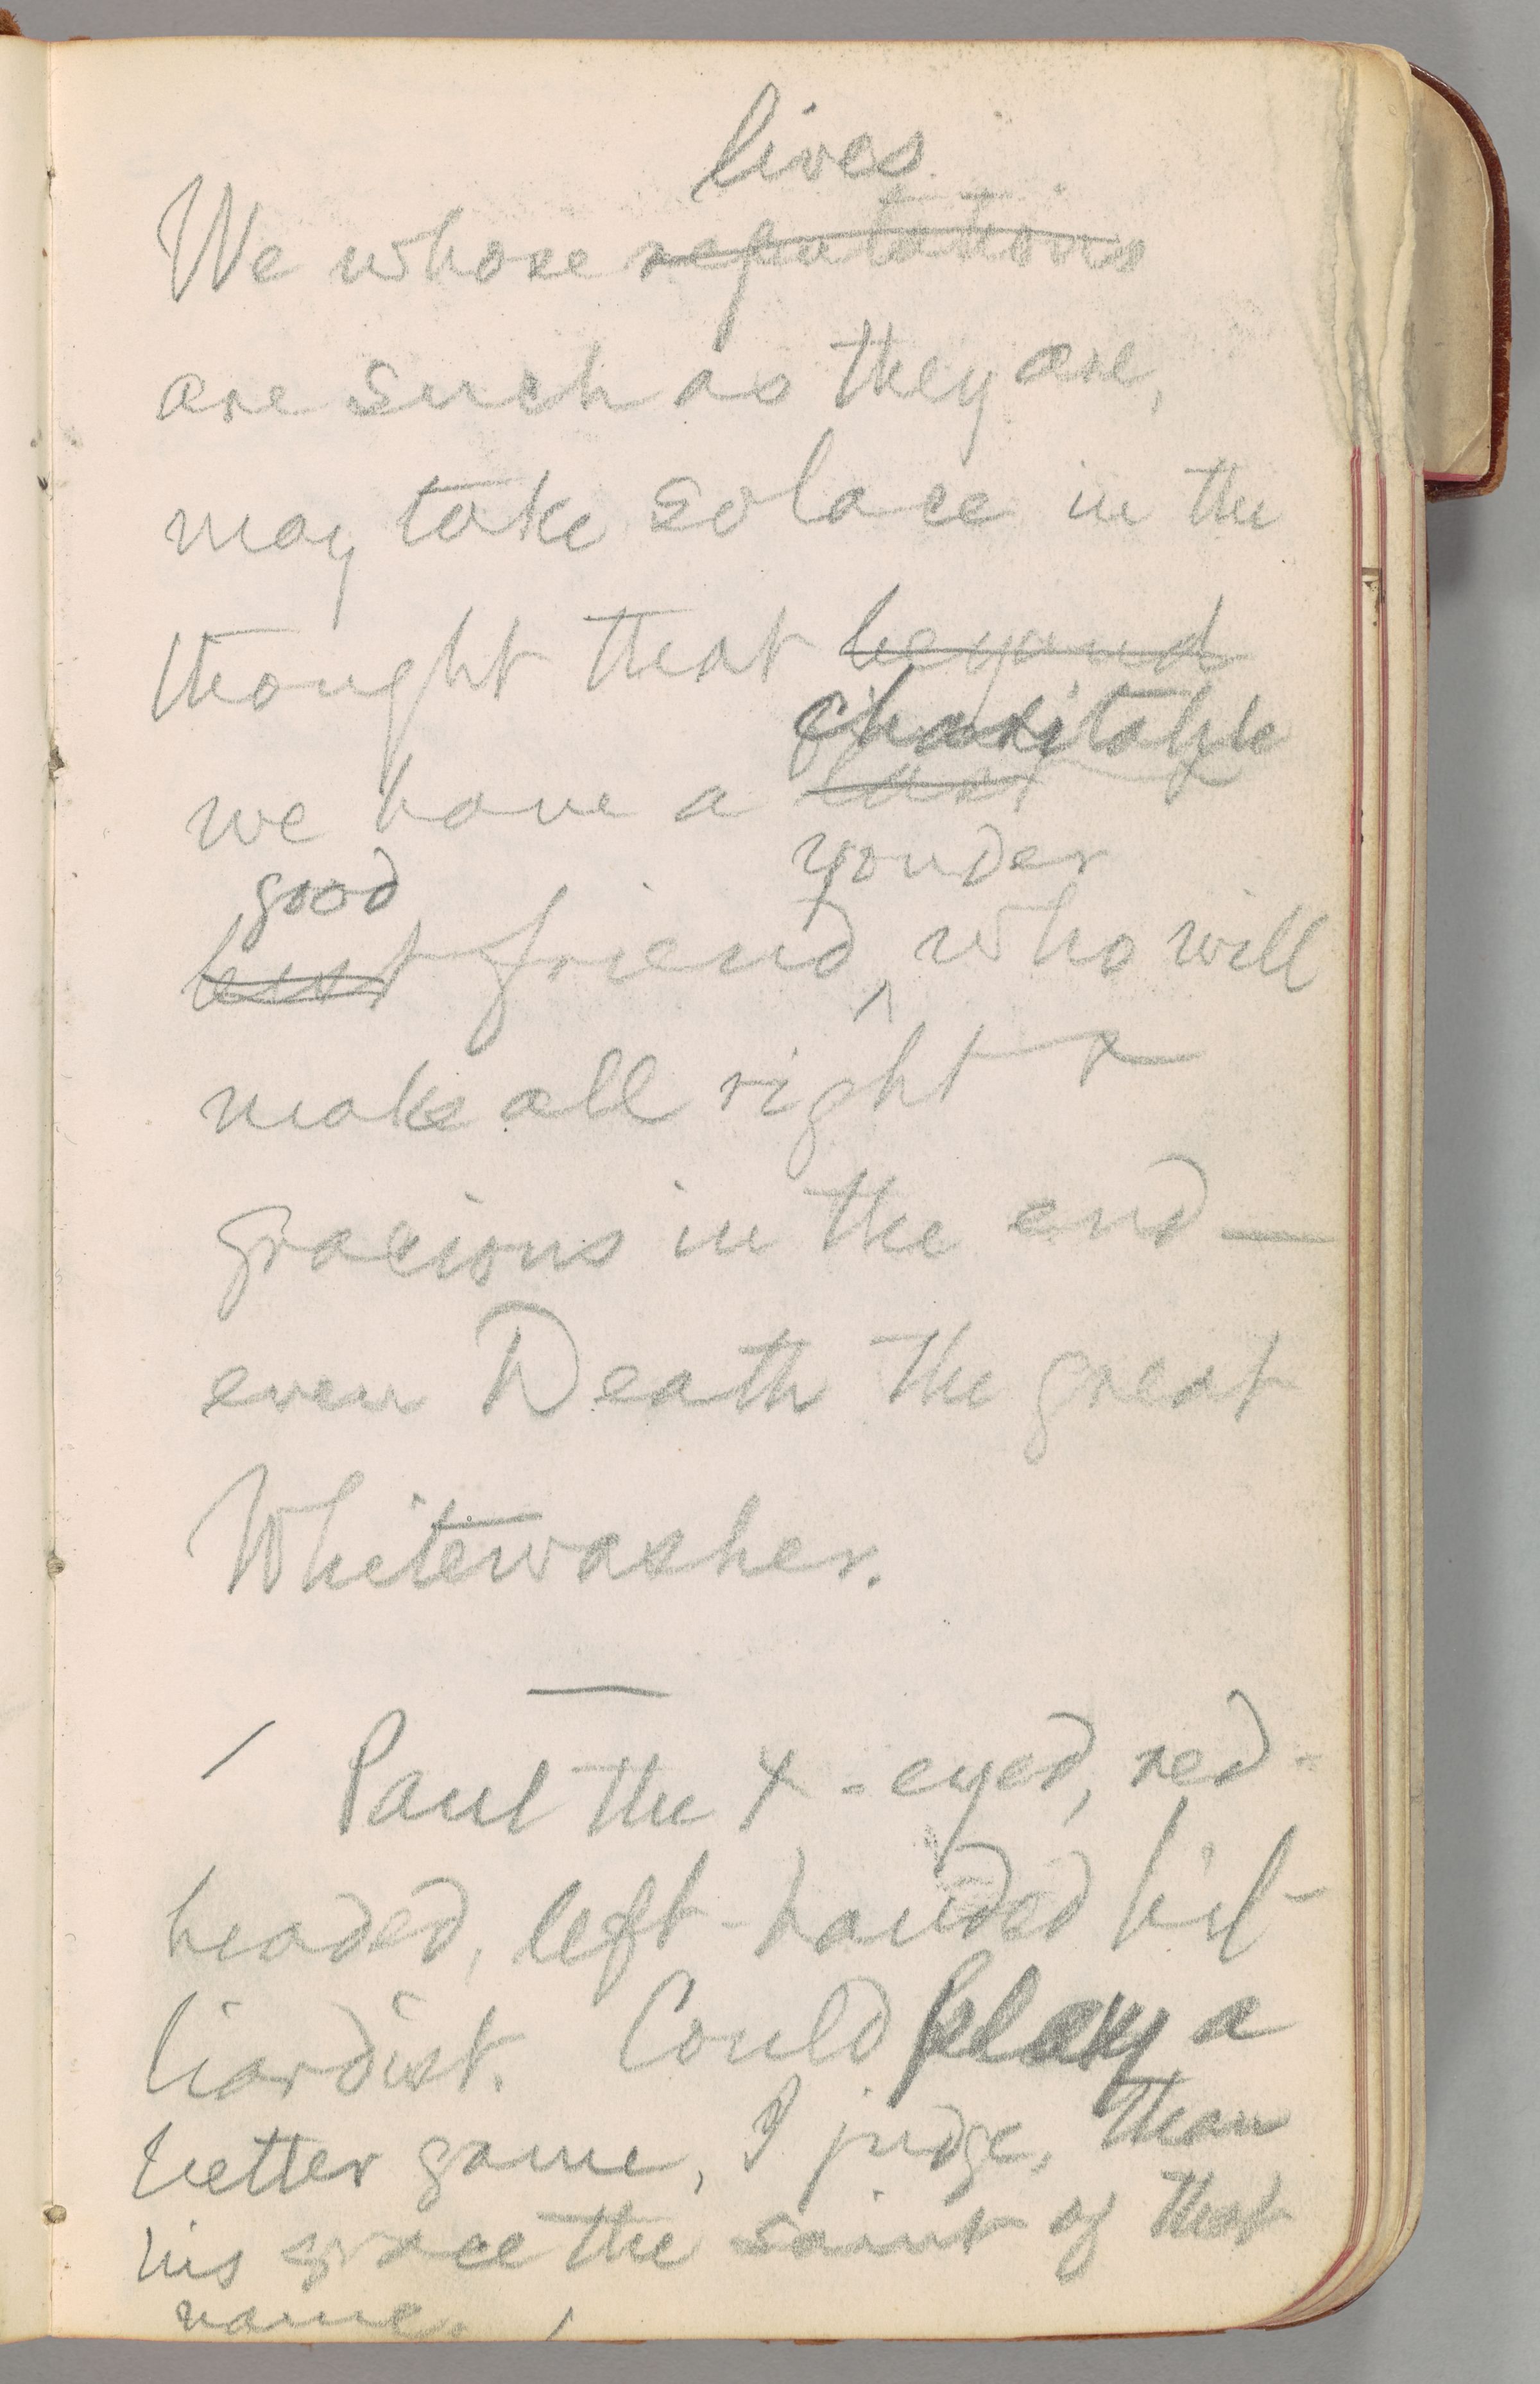 lives
We whose reputations
are such as they are,
may take solace in the
thought that beyond
charitable
we have a last
good yonder
best friend, who will
make all right &
gracious in the end—
even Death the great
Whitewasher.
Paul the X-eyed, red-
headed, left-handed bil-
liardist. Could play a
better game, I judge, than
his grace the saint of that
name.